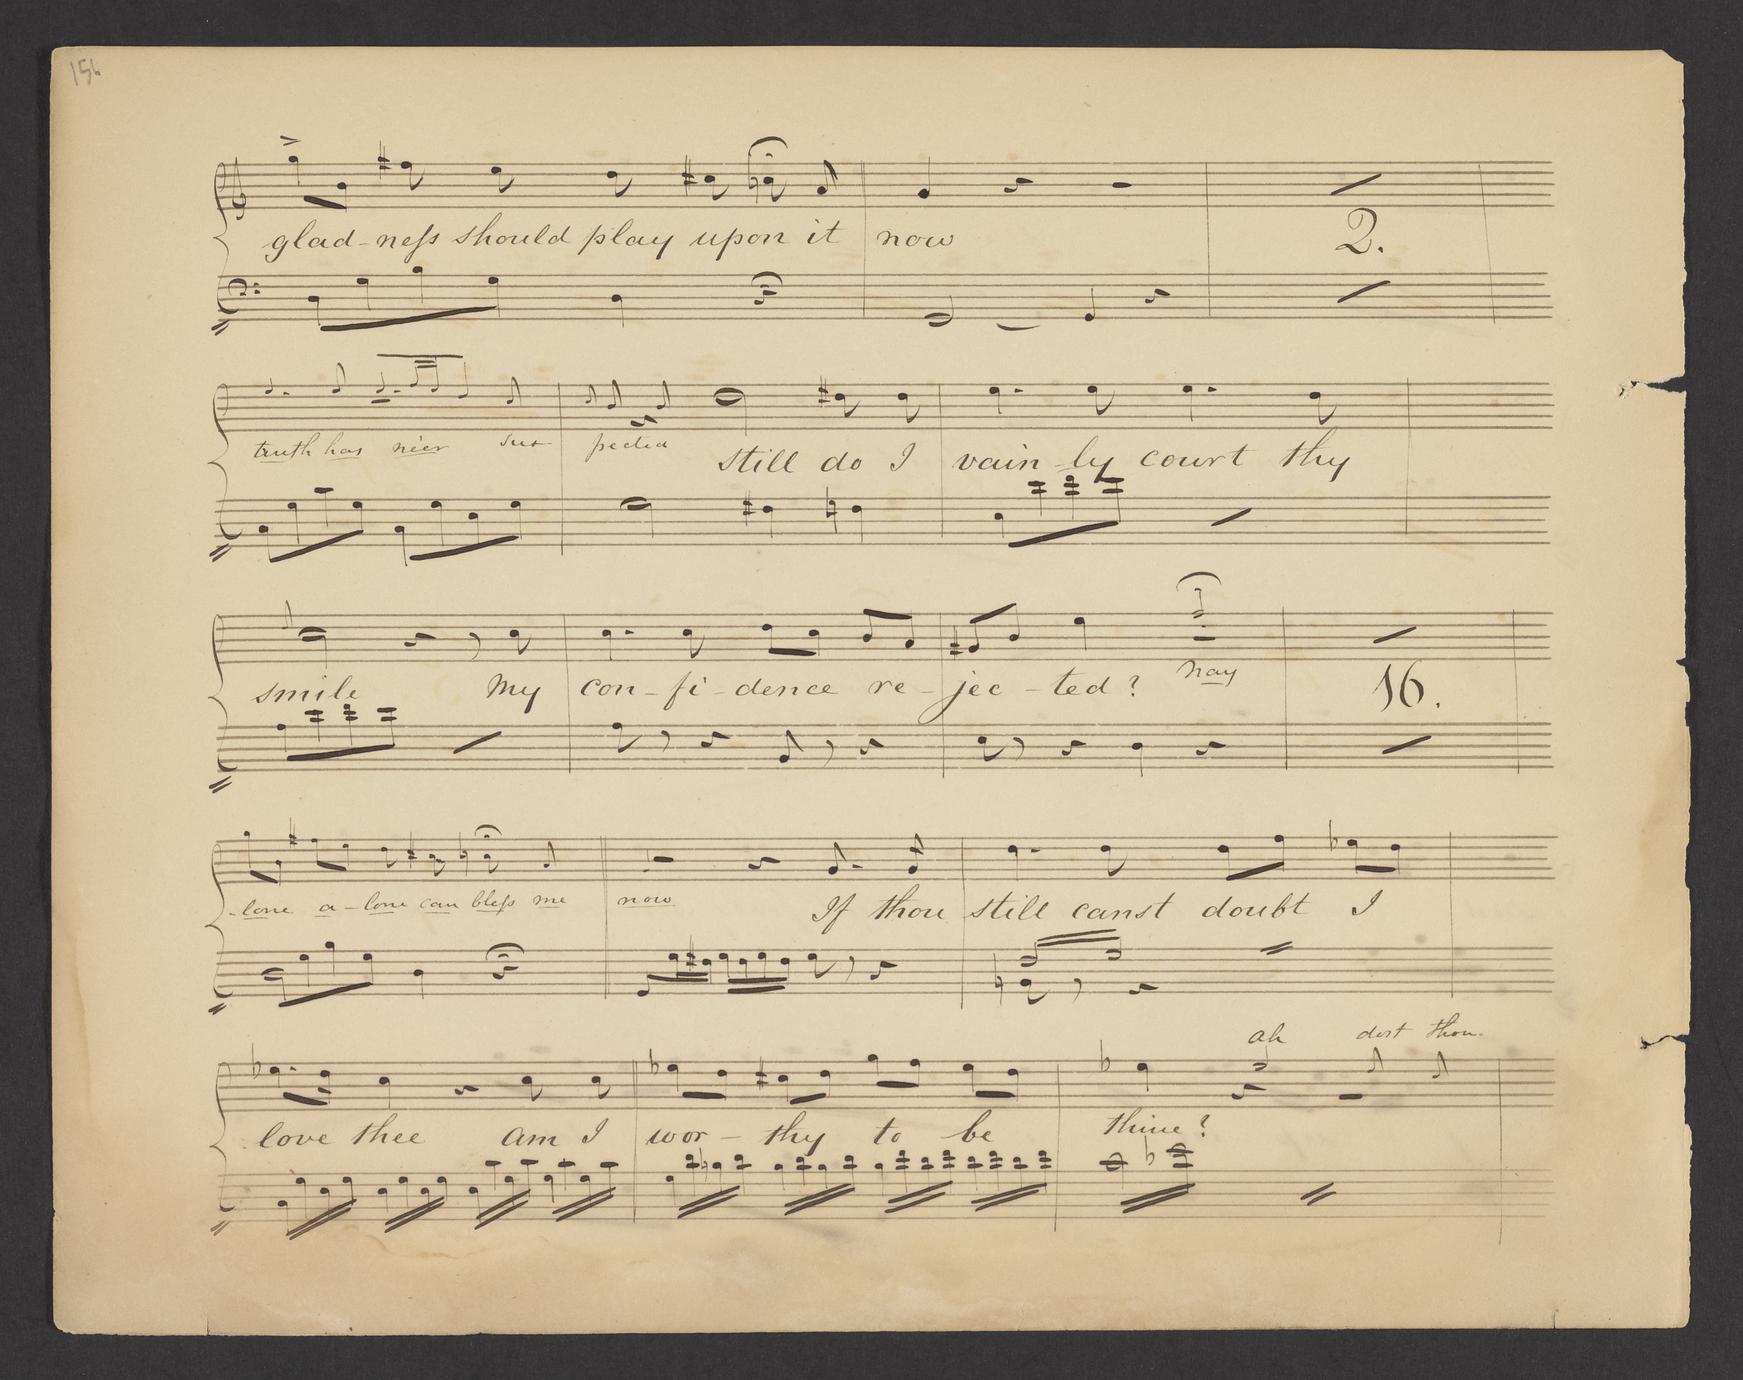 156
glad-neſs should play upon it now
2.
truth has ne'er sus pected still do I vain-ly court thy
smile My con-fi-dence re-jec-ted? nay
16.
-lone a-lone can bleſs me now If thou still canst doubt I
ah dost thou
love thee am I wor-thy to be thine?